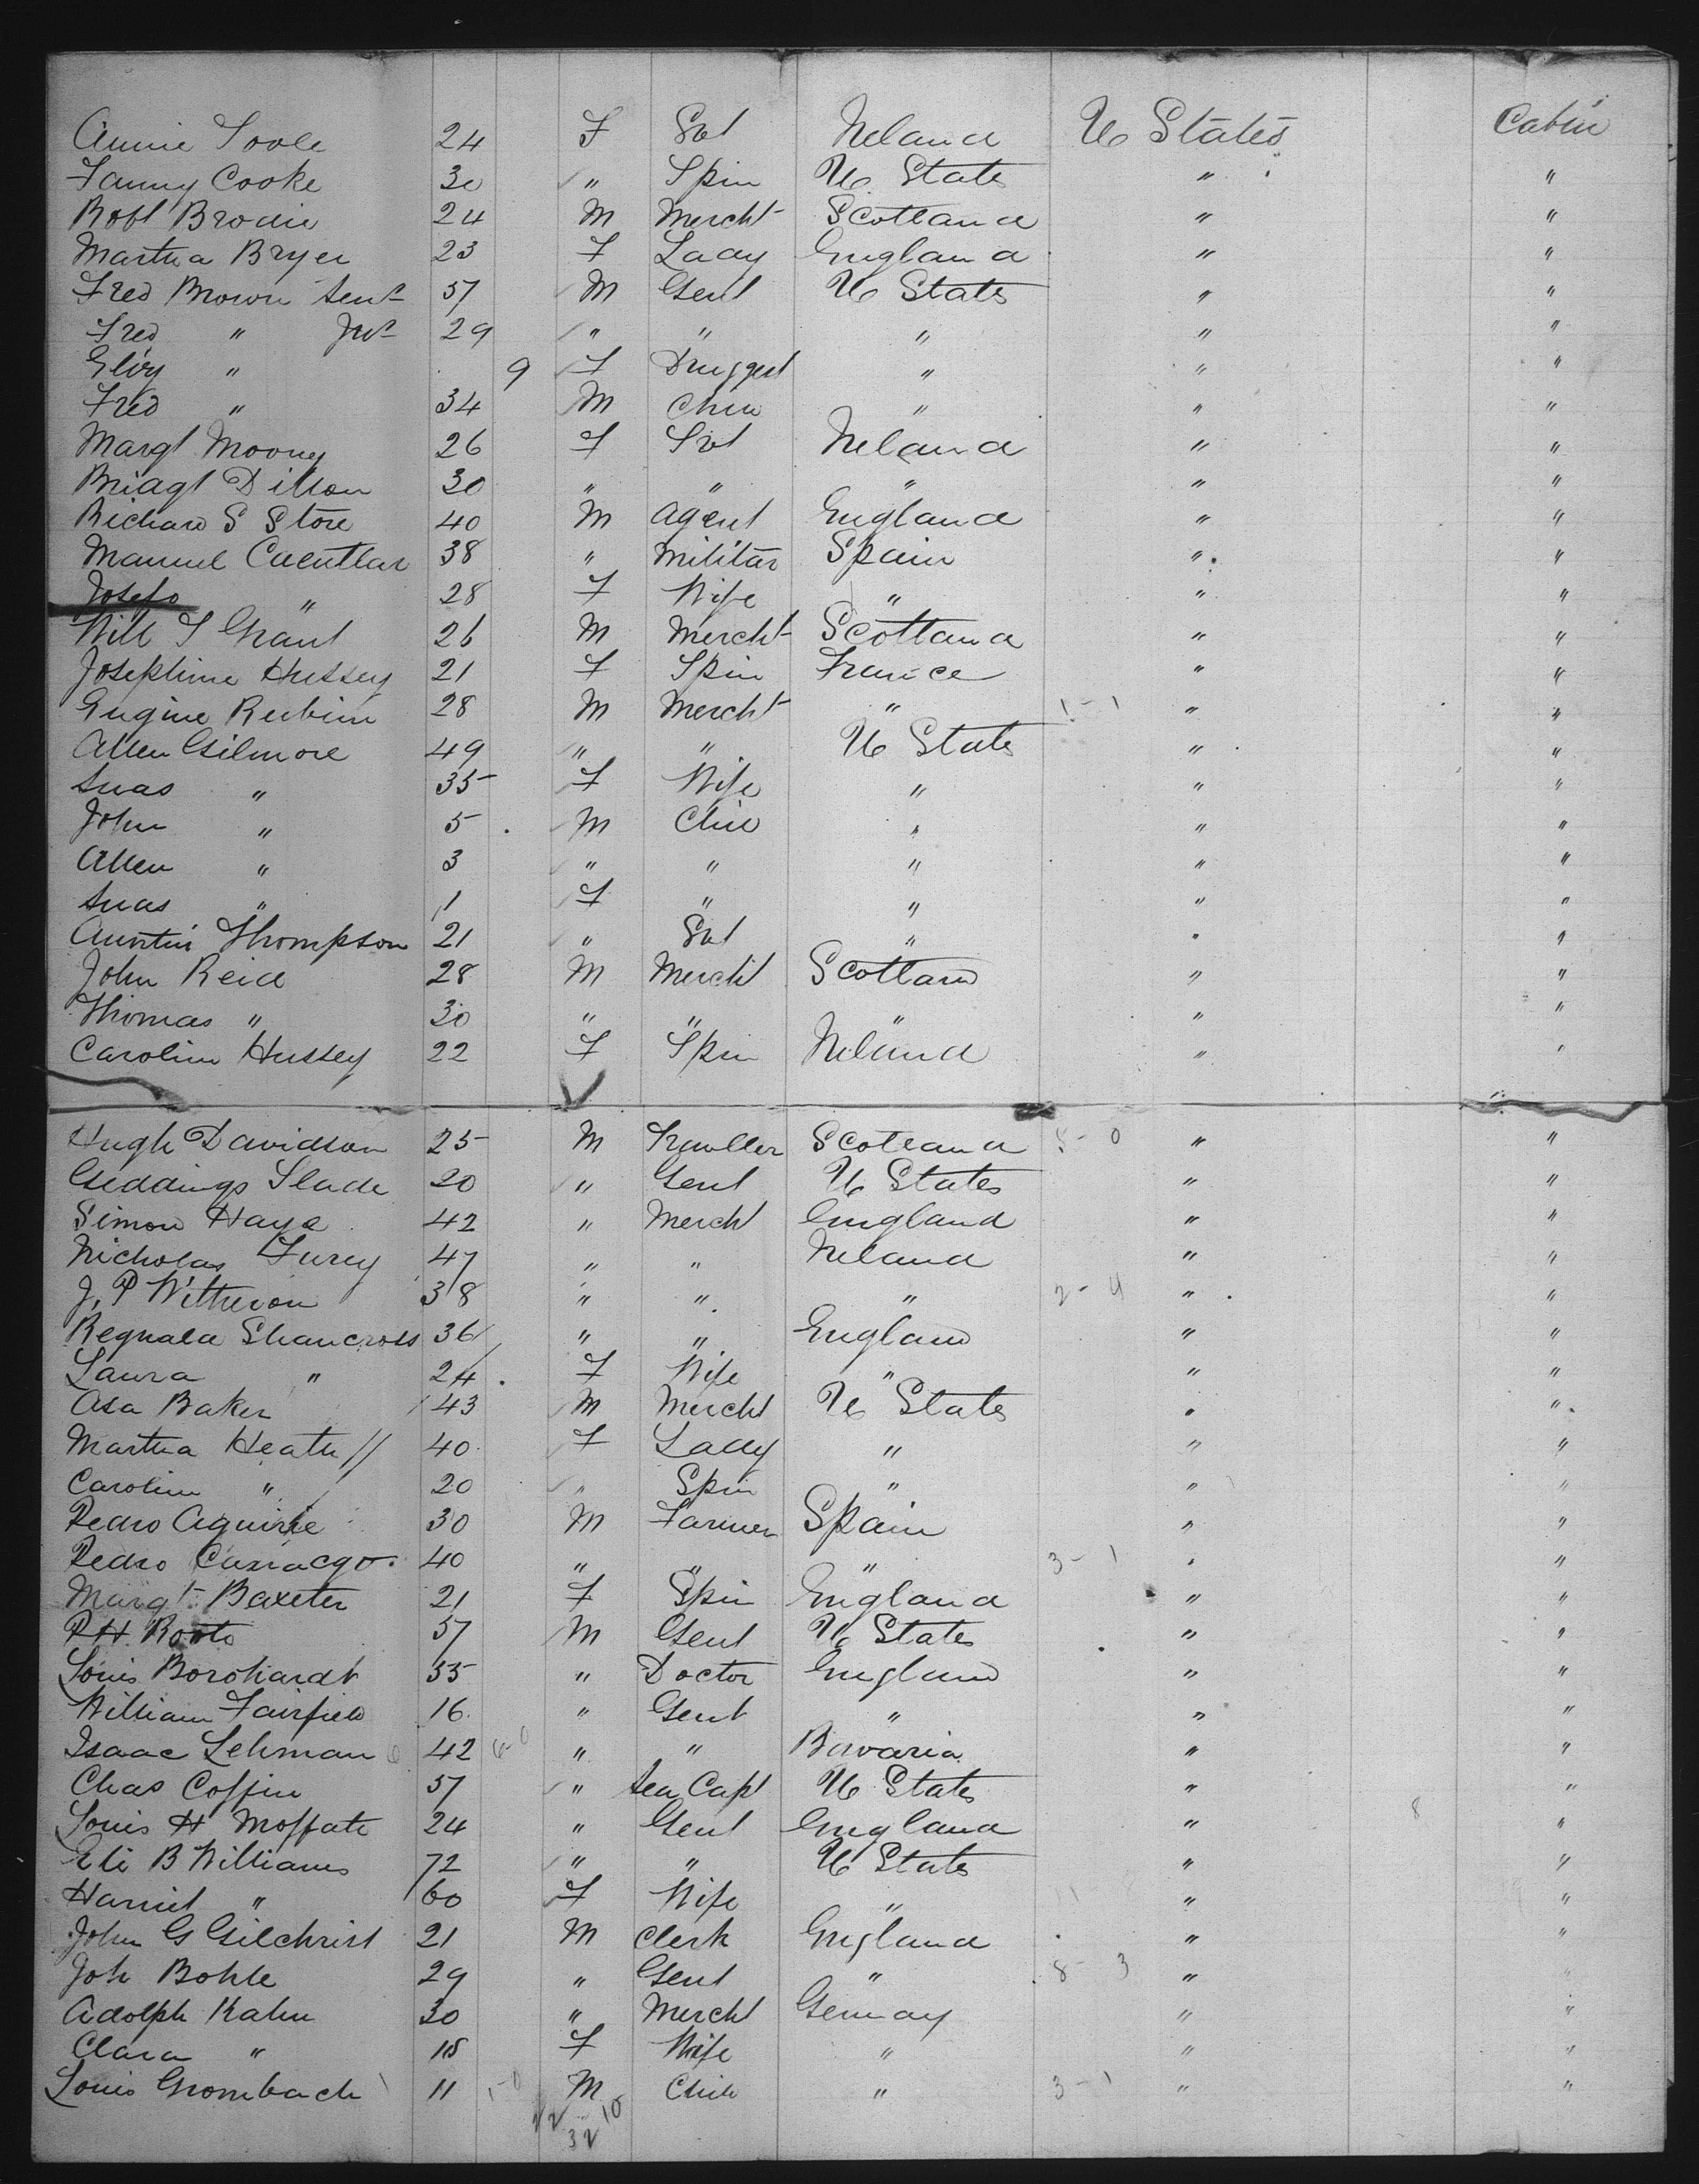 Annie Toole 24 F Svt Ireland U States Cabin
Fanny Cooke 30 " Spin U. States " "
Robt Brodie 24 M Mercht Scotland " "
Martha Bryer 23 F Lady England " "
Fred Brown Senr 57 M Gent U States " "
Fred " Junr 29 " " " " "
" 9 F Druggest " " "
Fred " 34 M Chil " " "
Margt Moony 26 F Svt Ireland " "
Bridgt Dillon 30 " " " " "
Richard S Store 40 M Agent England " "
Manuel 38 " Militar Spain " "
Josefo " 28 F Wife " " "
Will T Grant 26 M Mercht Scotland " "
Josephine Hussey 21 F Spin France " "
Eugine Reubin 28 M Mercht " 1-1 " "
Allen Gilmore 49 " " U States " "
" 35 F Wife " " "
John " 5 M Chil " " "
Allen " 3 " " " " "
" 1 F " " " "
Thompson 21 " Svt " " "
John Reid 28 M Mercht Scotland " "
Thomas " 30 " " " " "
Carolin Hussey 22 F Spin Ireland " "
Hugh Davidson 25 M Scotland " "
Geddings Slade 20 " Gent U States " "
Simon Haye 42 " Mercht England " "
Nicholas Furey 47 " " Ireland " "
J. P Witheron 38 " " " 2-4 " "
Regnald Shancross 36 " " England " "
Laura " 24 F Wife " " "
Asa Baker 43 M Mercht U States " "
Martha Heath // 40 F Lady " " "
Carolin " 20 " Spin " " "
Pedro Aguirie 30 M Farmer Spain " "
Pedro 40 " " " 3-1 " "
Margt Baxeter 21 F Spin England " "
P H Roots 57 M Gent U States " "
Louis Borchardt 55 " Doctor England " "
William Fairfield 16 " Gent " " "
Isaac Lehman 42 6-0 " " Bavaria " "
Chas Coffin 57 " Sea Capt U States " "
Louis H Moffatt 24 " Gent England " 8 "
Eli B Williams 72 " " U States " "
Harriet " 60 F Wife " " "
John G Gilchrist 21 M Clerk England " "
Joh Bohle 29 " Gent " 8-3 " "
Adolph Kahn 30 " Mercht Germay " "
Clara " 18 F Wife " " "
Louis Grombach 11 1-0 M Chil " 3-1 " "
22 10
32